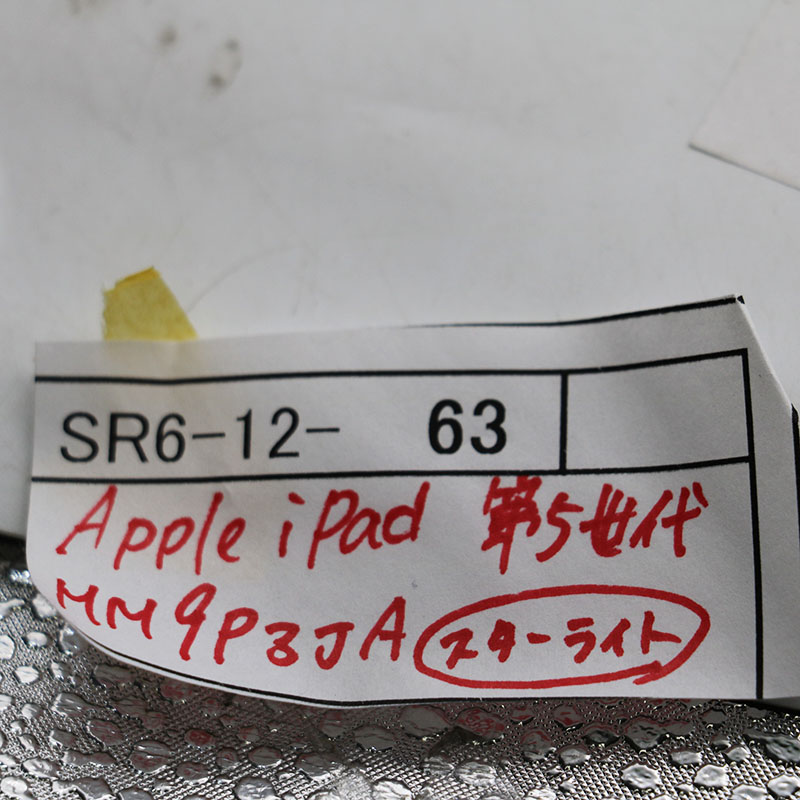 SR6-12- 63
Apple iPad 第5世代
MM9P3JA スターライト